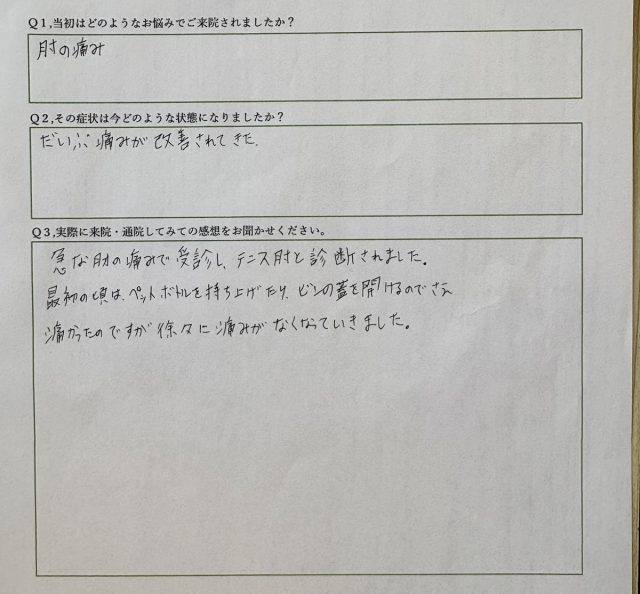 Q1,当初はどのようなお悩みでご来院されましたか？
肘の痛み
Q2,その症状は今どのような状態になりましたか？
だいぶ痛みが改善されてきた.
Q3,実際に来院・通院してみての感想をお聞かせください。
急な肘の痛みで受診し、テニス肘と診断されました。
最初の頃は、ペットボトルを持ち上げたり、ビンの蓋を開けるのでさえ
痛かったのですが徐々に痛みがなくなっていきました。